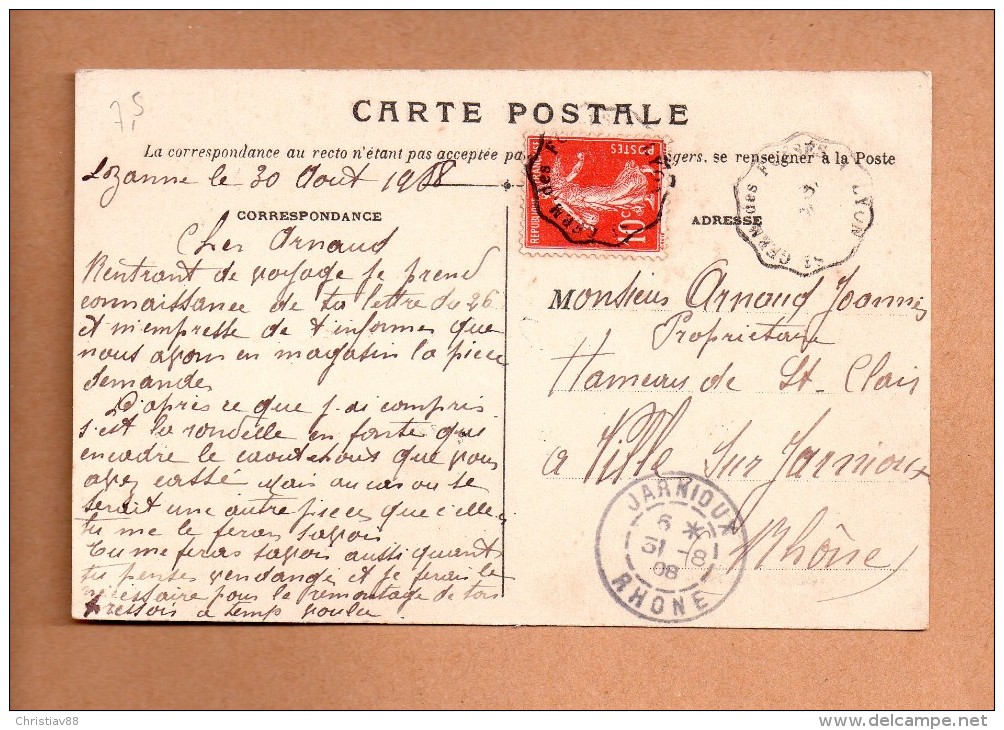 7,5
CARTE POSTALE
La correspondance au recto n'étant pas acceptée pa gers. se renseigner à la Poste
Lozanne le 30 Aout 1908
CORRESPONDANCE
ADRESSE
Cher Arnaud
Rentrant de voyage je prend
connaissance de ta lettre du 26
et m'empresse de t informer que
nous avons en magasin la piece
demandes
D'après ce que j. ai compris
s'est la rondelle en fonte que
encadre le caoutchouc que vous
avez cassé Mais au cas ou se
serait une autre piece que celle
tu me le feras savoir
Tu me feras savoir aussi quant
tu penses vendangé et je ferai le
nécessaire pour le remontage de ton
pressoir a temp voulu
POSTES
10 C
ST GERM des FOSSES A LYON
Monsieur Arnaud Joannes
Propriétaire
Hameau de St-Clair
a Ville Sur Jarnioux
Rhône
JARNIOUX
6 *
31 -8
08
RHONE
Christiav88
www.delcampe.net